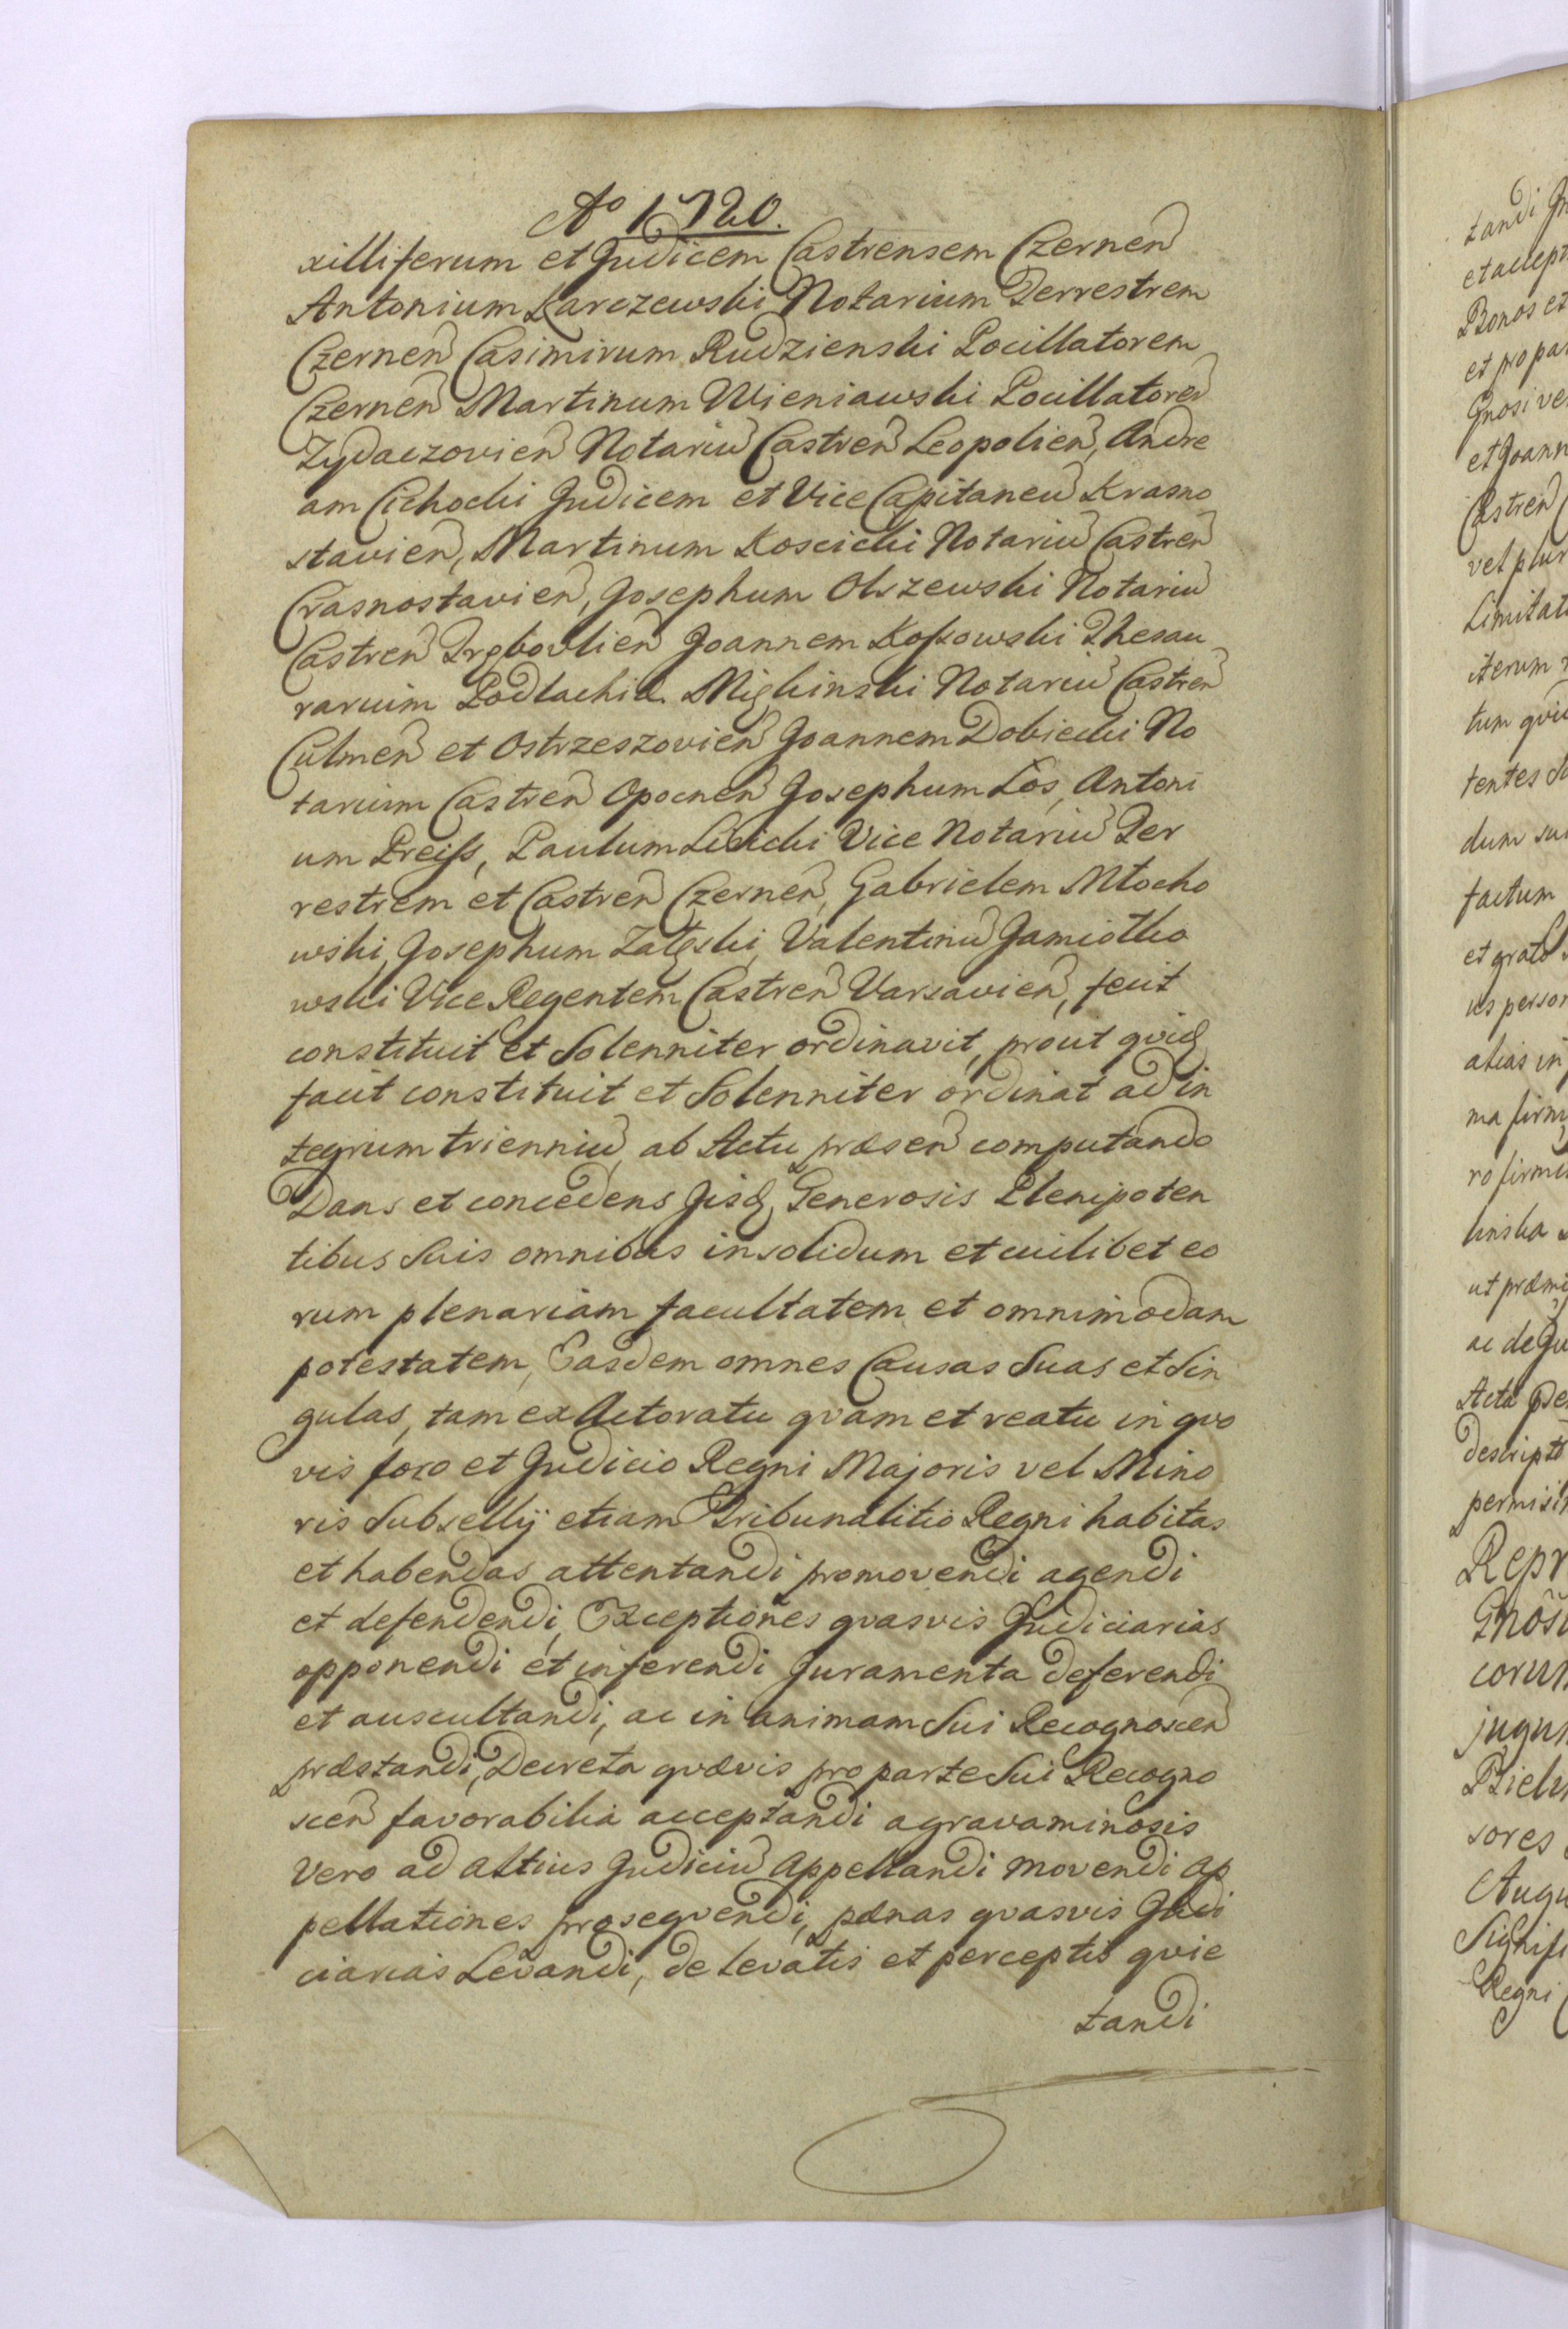 Ao 1720.
xilliferum et Judicem Castrensem Czernen
Antonium Karczewski Notarium Terrestrem
Czernen Casimirum Rudzienski Pocillatorem
Czernen Martinum Wieniawski Pocillatorem
Zydaczovien Notariu Castren Leopolien, Andre
am Cichocki Judicem et Vice Capitaneu Krasno
stavien, Martinum Koscicki Notariu Castren
Crasnostavien, Josephum Olszewski Notariu
Castren Trębovlien Joannem Kossowski Thesau
rarium Podlachiæ Miękinski Notariu Castren
Culmen et Ostrzeszovien Joannem Dobiecki No
tarium Castren Opocnen Josephum Łos, Antoni
um Preiss, Paulum Lisicki Vice Notariu Ter
restrem et Castren Czernen, Gabrielem Młocho
wski, Josephum Załęski, Valentinu Jamiołko
wski Vice Regentem Castren Varsavien, fecit
constituit et Solenniter ordinavit, prout quidę
facit constituit et Solenniter ordinat ad in
tegrum trienniu ab Actu præsen computando
Dans et concedens Jisdę Generosis Plenipoten
tibus Suis omnibus insolidum et cuilibet eo
rum plenariam facultatem et omnimodam
potestatem, Easdem omnes Causas Suas et Sin
gulas, tam ex Actoratu qvam et reatu in qvo
vis foro et Judicio Regni Majoris vel Mino
ris Subsellij etiam Tribunalitio Regni habitas
et habendas attentandi promovendi agendi
et defendendi, Exceptiones qvasvis Judiciarias
opponendi et inferendi Juramenta deferendi
et auscultandi, ac in animam Sui Recognoscen
præstandi, Decreta qvævis pro parte Sui Recogno
scen favorabilia acceptandi agravaminosis
vero ad altius Judiciu Appellandi movendi Ap
pellationes proseqvendi, pænas qvasvis Judi
ciarias Levandi, de levatis et perceptis qvie
tandi
tandi
et accept
Bonos et
et pro par
Gnosi ve
et Joann
Castren
vel plur
Limitat
iterum
tum qvi
tentes
dum su
factum
et grat
us person
alias in
ma firm
ro firmi
linska
ut præmi
ac de
Acta
descript
permisi
Repr
corum
jugum
sores
Augu
Signifi
Regni